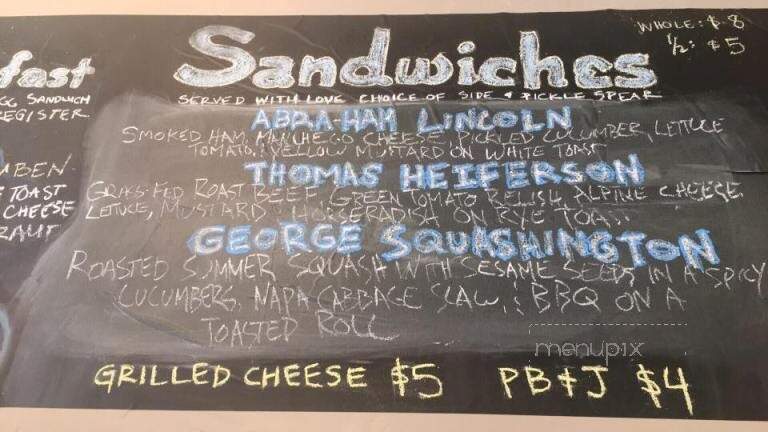 Sandwiches
WHOLE: $8
1/2: $5
SERVED WITH LOVE CHOICE OF SIDE & PICKLE SPEAR
ABRA-HAM LINCOLN
SMOKED HAM, MANCHEGO CHEESE, PICKLED CUCUMBER, LETTUCE
TOMATO, & YELLOW MUSTARD ON WHITE TOAST
THOMAS HEIFERSON
GRASS-FED ROAST BEEF, GREEN TOMATO RELISH, ALPINE CHEESE,
LETTUCE, MUSTARD & HORSERADISH ON RYE TOAST
GEORGE SQUASHINGTON
ROASTED SUMMER SQUASH WITH SESAME SEEDS IN A SPICY
CUCUMBERS, NAPA CABBAGE SLAW, & BBQ ON A
TOASTED ROLL
GRILLED CHEESE $5 PB&J $4
fast
GG SANDWICH
REGISTER
UBEN
TOAST
CHEESE
RAUT
menupix